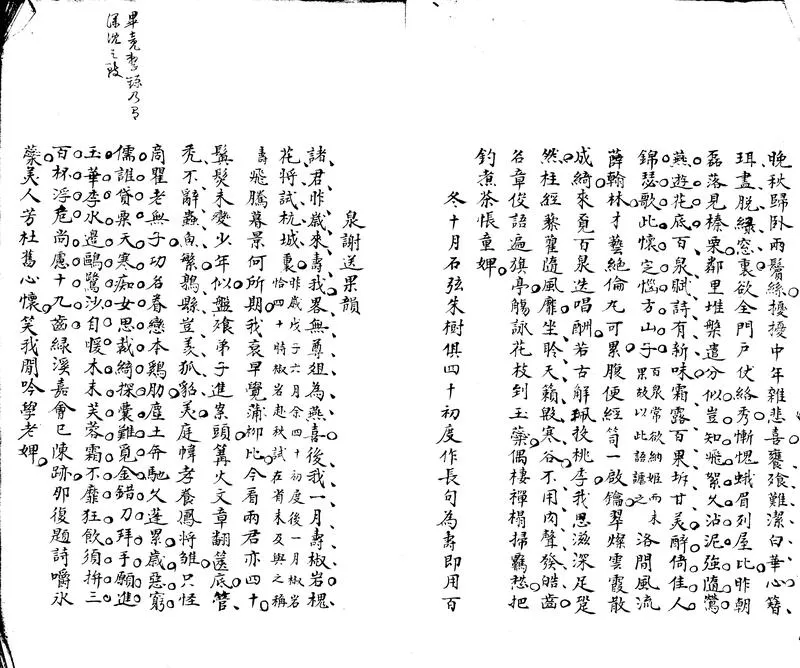 晚秋歸臥雨鬢絲擾擾中年雜悲喜饔飧難潔白華心簪
珥盡脫綠窓裏欲全門戶伏絡秀慚愧蛾眉列屋比昨朝
磊落見榛栗鄰里堆槃遣分似豈知飛絮久沾泥強隨鶯
燕遊花底百泉賦詩有新味霜露百果坼甘美醉倚佳人
錦瑟歌此懷定惱方山子百泉常欲納姬而未果故以此語謔之洛閩風流
薛翰林才藝絕倫九可累腹便經笥一啟鑰翠燦雲霞散
成綺來覓百泉迭唱酬若古解珮投桃李我思滋深足跫
然柱經藜藿隨風靡坐聆天籟毀寒谷不用肉聲發皓齒
名章俊語遍旗亭觴詠花枝到玉蘂偶棲禪榻掃羈愁把
釣煮茶悵童婢
冬十月石弦朱樹俱四十初度作長句為壽即用百
泉謝送果韻
諸君昨歲來壽我畧無尊俎為燕喜後我一月壽椒岩槐
花將試杭城裏昨歲戊子六月余四十初度後一月椒岩恰四十時椒岩赴秋試在省未及與之稱
壽飛騰暮景何所期我衰早覺蒲柳比今看兩君亦四十
鬢髮未變少年似盤飧弟子進案頭篝火文章翻篋底管
禿不辭蟲魚繁鶉縣豈羨狐貂美庭幃孝養鳳將雛只怪
商瞿老無子功名眷戀本鷄肋塵土奔馳久蓬累歲惡窮
儒誰貸粟天寒痴女思裁綺探囊難覓金錯刀拜手願進
玉華李水邊鷗鷺沙自暖木末芙蓉霜不靡狂飲須拚三
百杯浮危尚慮十九齒綠溪嘉會已陳跡那復題詩嚼氷
蘂美人芳杜舊心懷笑我閒吟學老婢
深沈之致